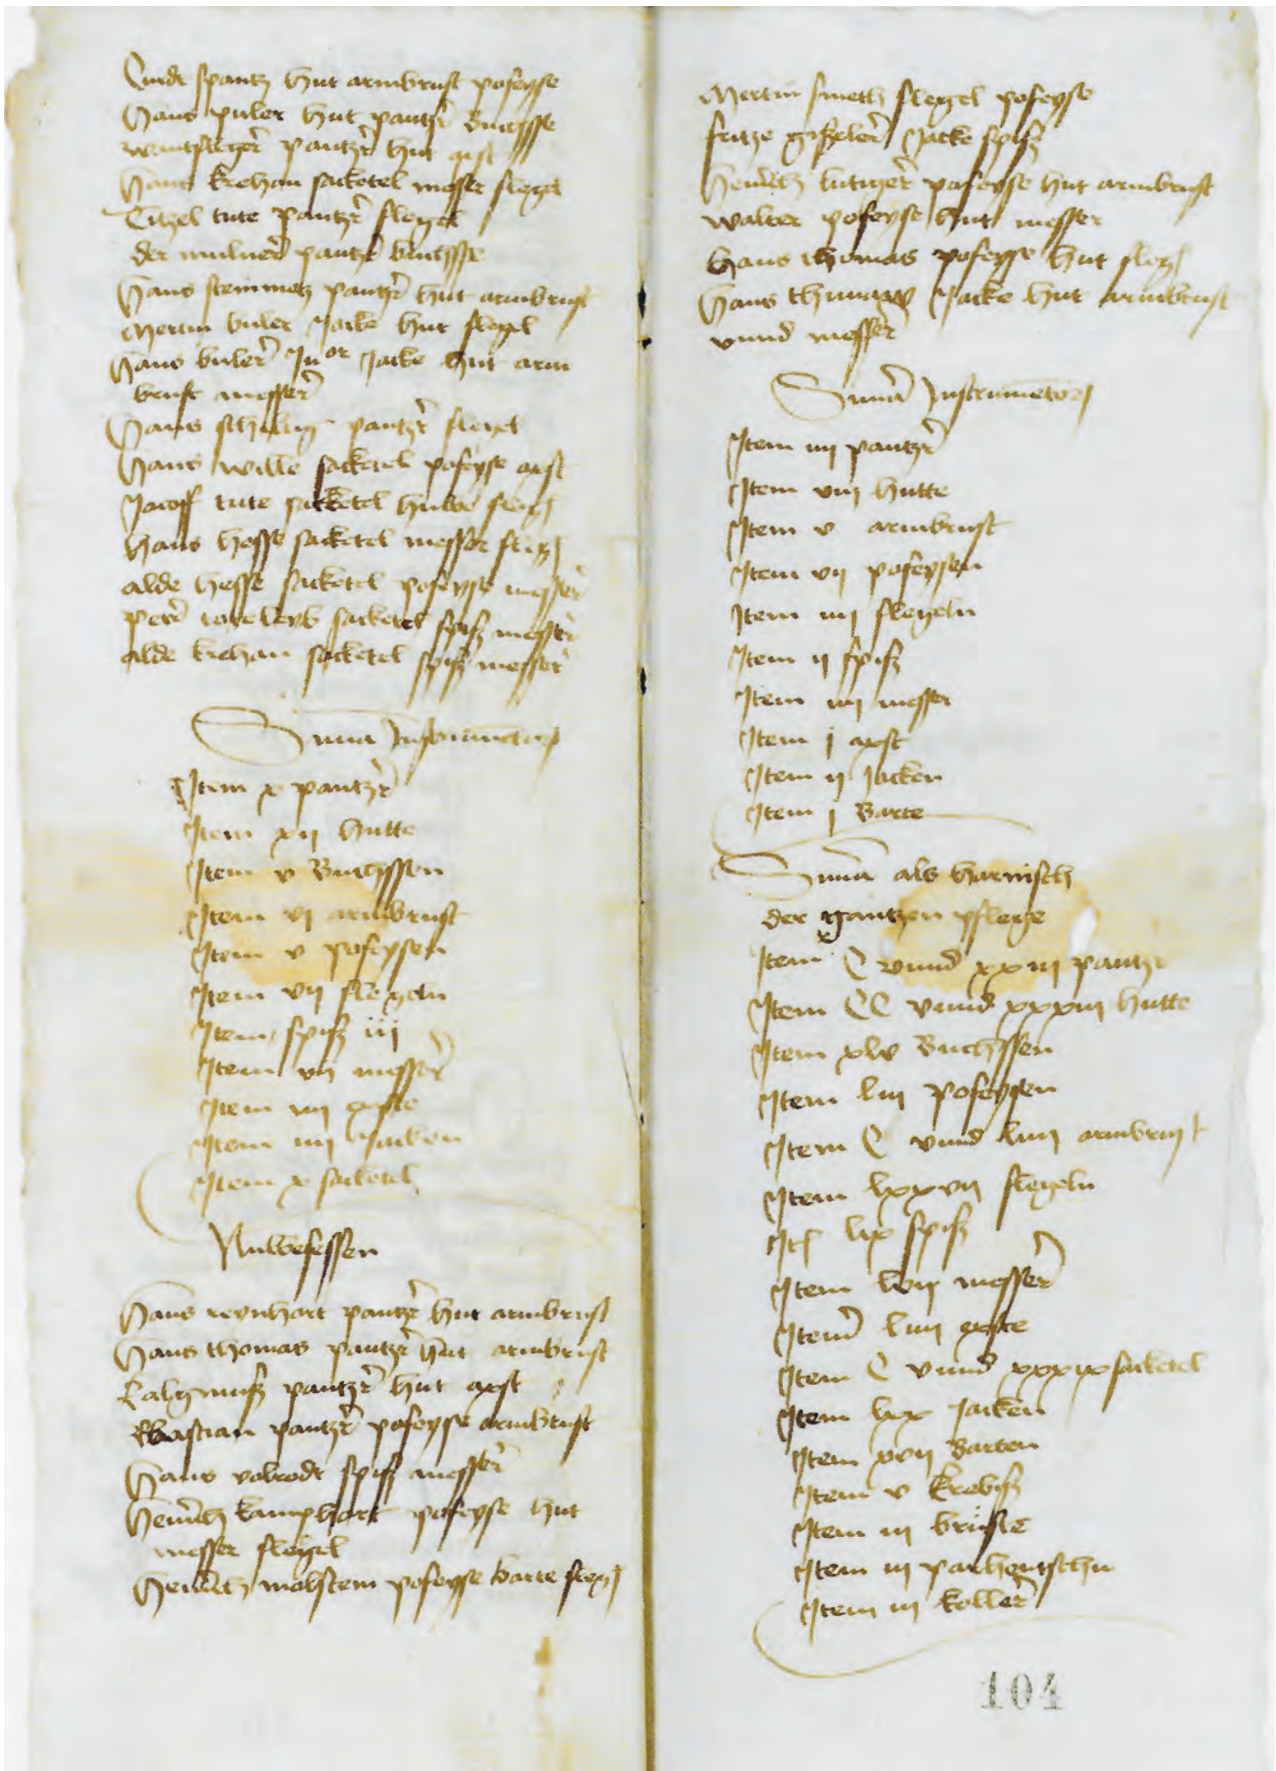 Curdt spantz hut armbrust pofeyse
Hans puler hut pantzer Buchsse
pantzer hut axst
Hans krehan sacketel messer flegel
Titzel tute pantzer flegel
der mulner pantzer buchsse
Hans steinmetz pantzer hut armbrust
Mertin buler Jacke hut flegel
Hans buler Junior Jacke hut arm
brust messer
Hans schillig pantzer flegel
Hans wille sacketel pofeyse axst
Jacoff tute sacketel hube flegel
Hans hesse sacketel messer flegel
alde hesse sacketel pofeyse messer
peter sacketel spisz messer
alde krehan sacketel spisz messer
Summa Instrumentorum
Item x pantzer
Item xij hutte
Item v Buchssen
Item vj armbrust
Item v pofeyssen
Item vij flegeln
Item spisz iij
Item vij messer
Item iiij exste
Item iiij Jacken
Item x sacketel
Nuwesessen
Hans reynhart pantzer hut armbrust
Hans thomas pantzer hut armbrust
pantzer hut axst
Bastian pantzer pofeyse armbrust
Hans volrodt spisz messer
Heinrich kamphart pofeyse hut
messer flegel
Heinrich molstein pofeyse barte flegel
Mertin smeth flegel pofeyse
fritze giszeler Jacke spisz
Heinrich lutiger pofeyse hut armbrust
Walter pofeyse hut messer
Hans thomas pofeyse hut flegel
Hans Jacke hut armbrust
vnnd messer
Summa Instrumentorum
Item iiij pantzer
Item viij hutte
Item v armbrust
Item vij pofeysen
Item iiij flegeln
Item ij spisz
Item iiij messer
Item j axst
Item ij Jacken
Item j Barte
Summa als harnisch
der gantzen pflege
Item C vnnd xxiij pantzer
Item CC vnnd xxxiij hutte
Item xlv Buchssen
Item liij pofeysen
Item C vnnd liiij armbrust
Item lxxvij flegeln
Item lix spisz
Item lvij messer
Item liiij exste
Item C vnnd xxxix sacketel
Item lxx Jacken
Item xvij Barten
Item v krebisz
Item iij brüste
Item iij panhentschu
Item iij koller
104